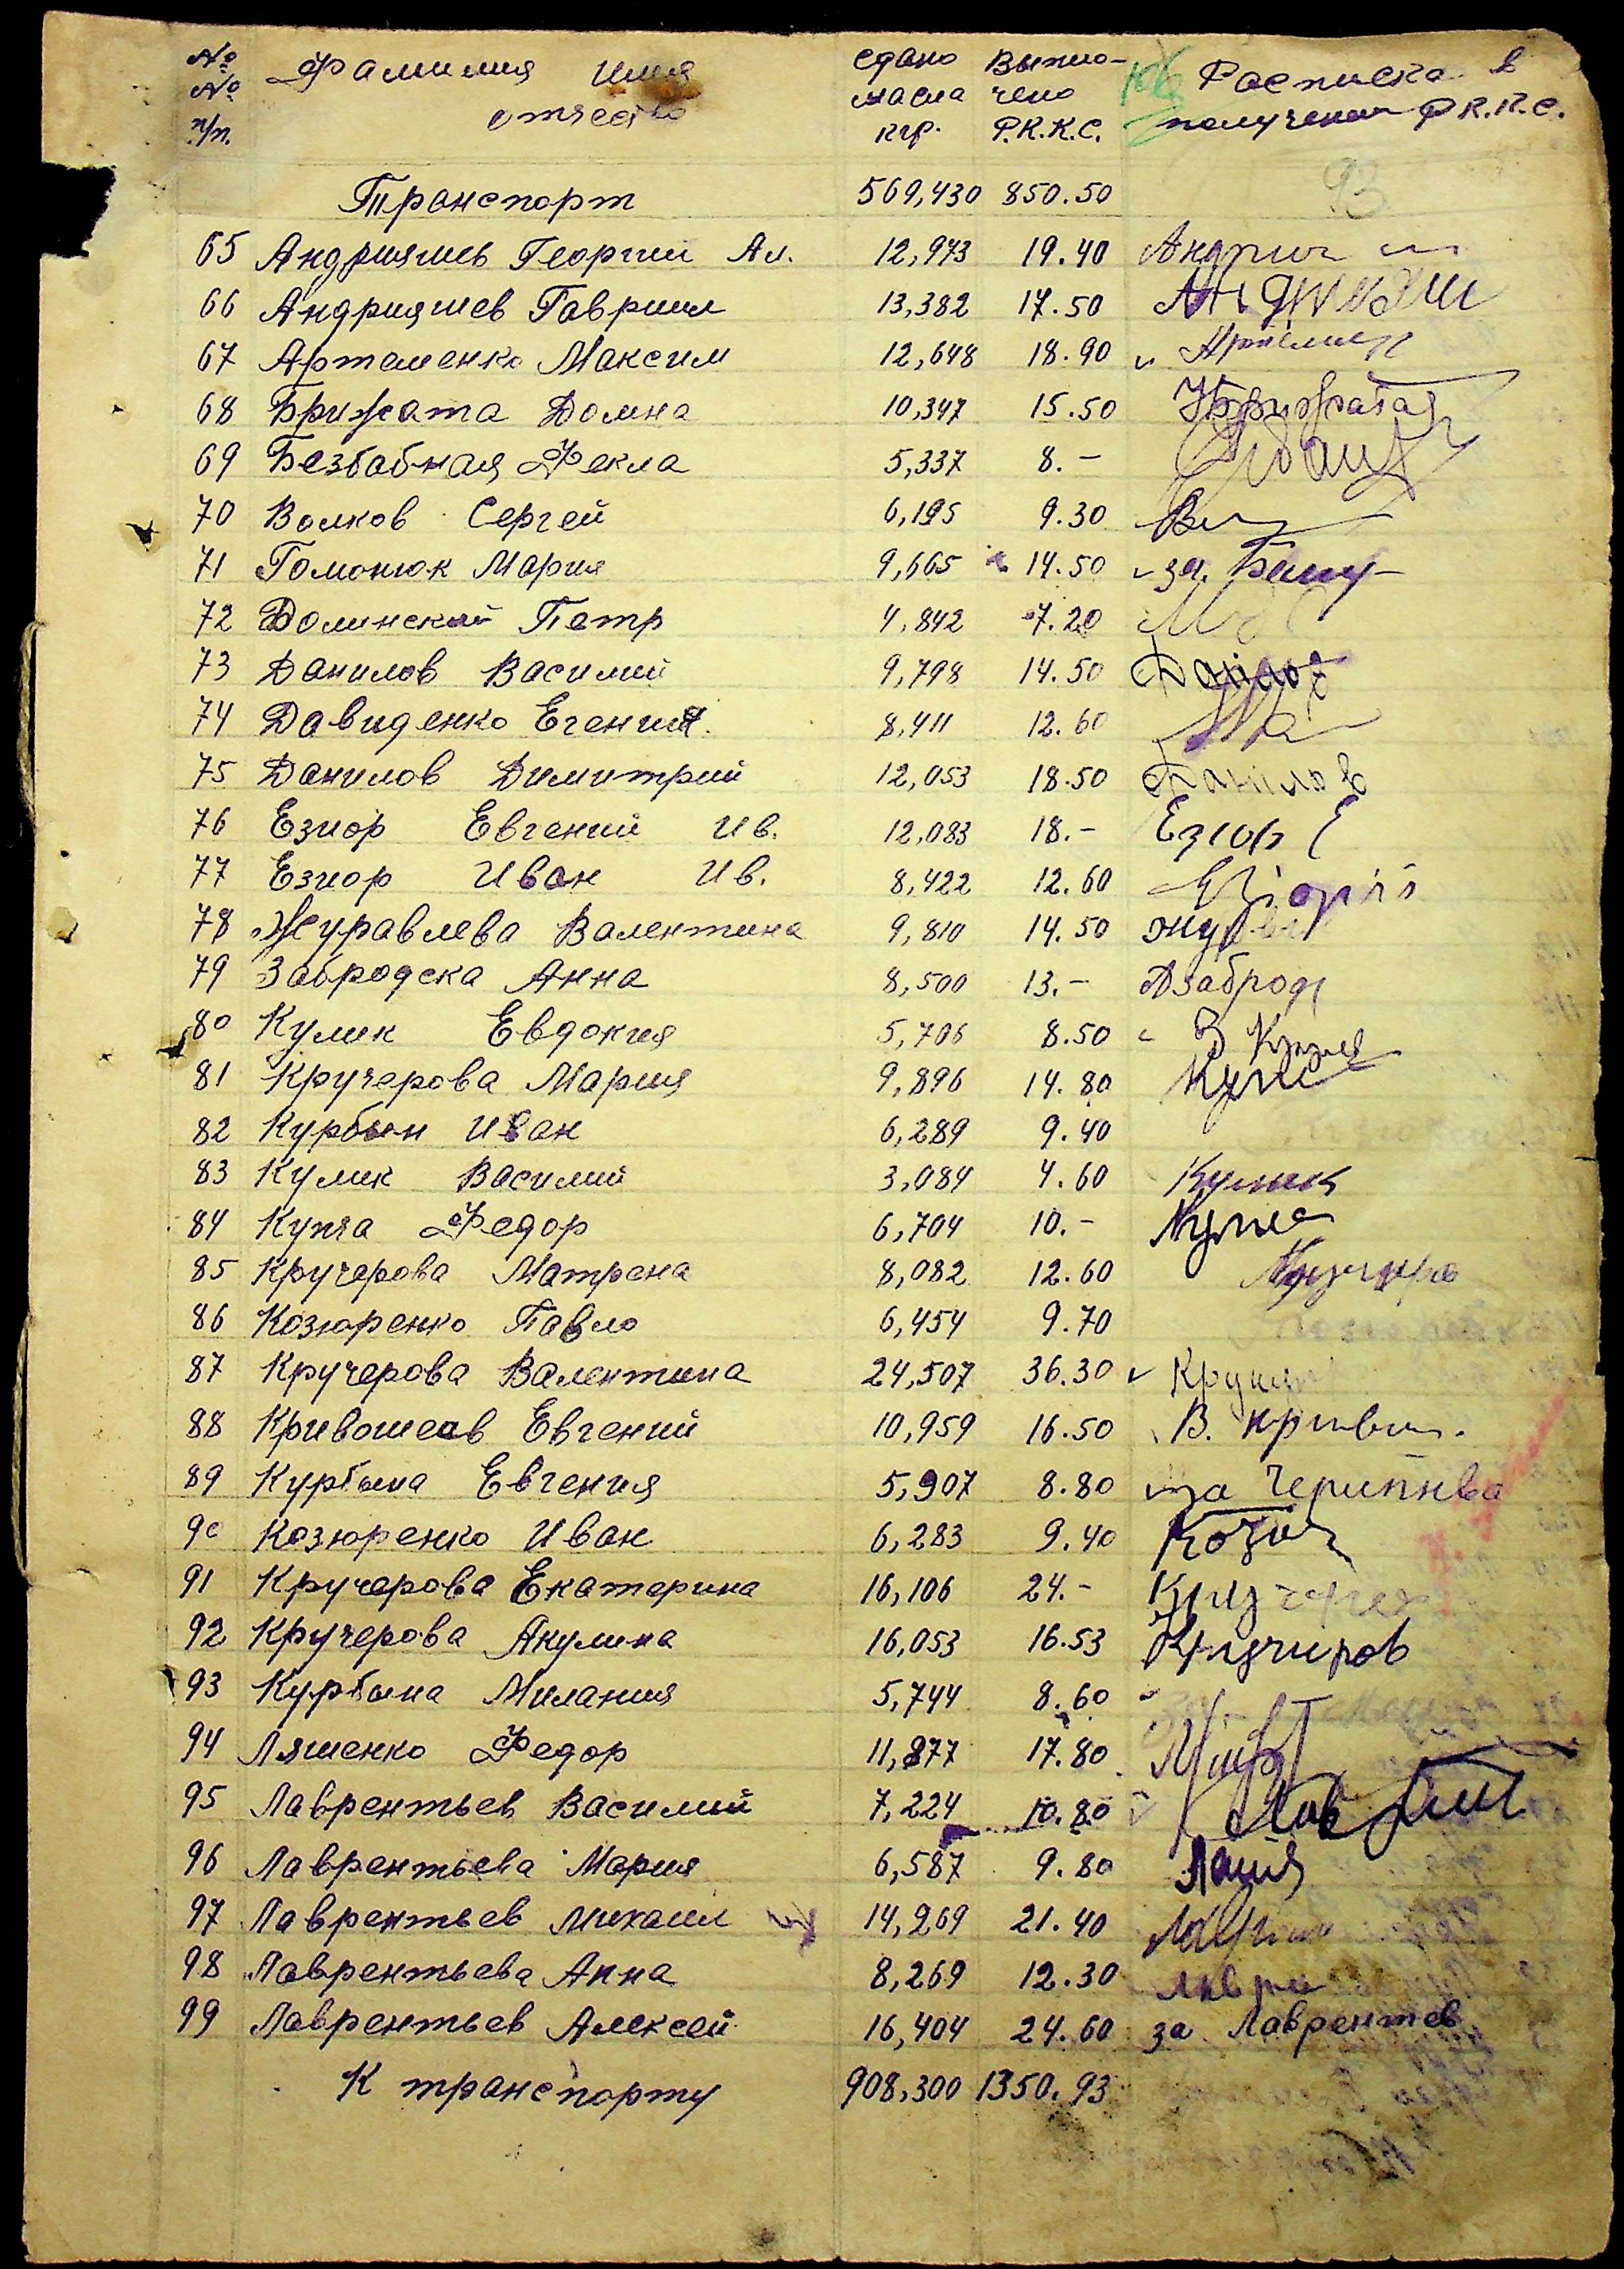 № № п/п. Фамилия имя отчество Сдано масла кгр. Выпла-чено Р.К.К.С. Расписка в получении Р.К.К.С.
93
Транспорт 569,430 850.50
65 Андрияшев Георгий Ал. 12,973 19.40
66 Андрияшев Гавриил 13,382 17.50
67 Артеменко Максим 12,648 18.90
68 Брижата Домна 10,347 15.50
69 Безбабная Фекла 5,337 8.-
70 Волков Сергей 6,195 9.30
71 Гомонюк Мария 9,665 14.50 за
72 Долинский Петр 4,842 7.20
73 Данилов Василий 9,798 14.50
74 Давиденко Евгений 8,411 12.60
75 Данилов Димитрий 12,053 18.50 Данілов
76 Езиор Евгений Ив. 12,083 18.- Езиор Е
77 Езиор Иван Ив. 8,422 12.60
78 Журавлева Валентина 9,810 14.50
79 Забродска Анна 8,500 13.- Азаброд
80 Кулик Евдокия 5,706 8.50
81 Кручерова Мария 9,896 14.80
82 Курбын Иван 6,289 9.40
83 Кулик Василий 3,084 4.60 Кулик
84 Купча Федор 6,704 10.-
85 Кручерова Матрена 8,082 12.60
86 Козюренко Павло 6,454 9.70
87 Кручерова Валентина 24,507 36.30
88 Кривошеев Евгений 10,959 16.50
89 Курбына Евгения 5,907 8.80 за
90 Козюренко Иван 6,283 9.40
91 Кручерова Екатерина 16,106 24.-
92 Кручерова Акулина 16,053 16.53 Кручиров
93 Курбына Милания 5,744 8.60
94 Ляшенко Федор 11,877 17.80
95 Лаврентьев Василий 7,224 10.80
96 Лаврентьева Мария 6,587 9.80
97 Лаврентьев Михаил 14,269 21.40
98 Лаврентьева Анна 8,269 12.30
99 Лаврентьев Алексей 16,404 24.60 за Лаврентев
К транспорту 908,300 1350.93